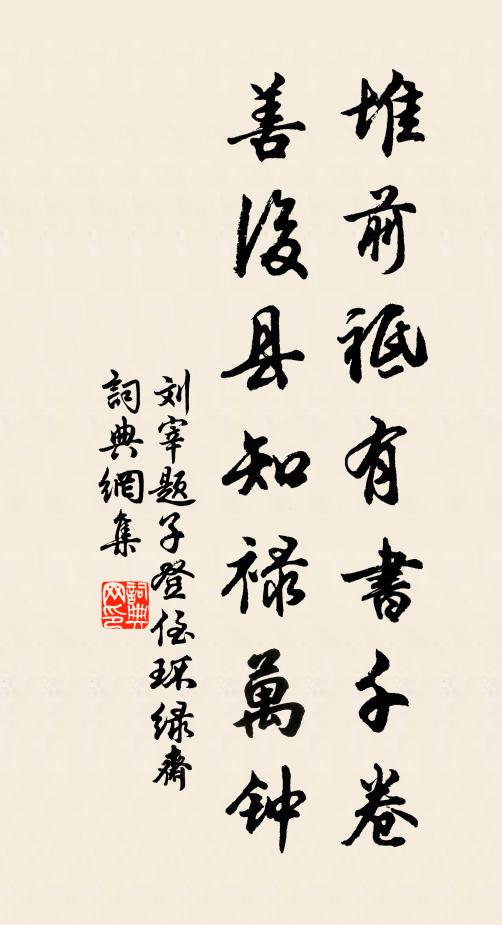 堆前祗有書千卷
善后县知禄萬钟
刘宰题子登侄环绿斋
詞典網集
詞典网印